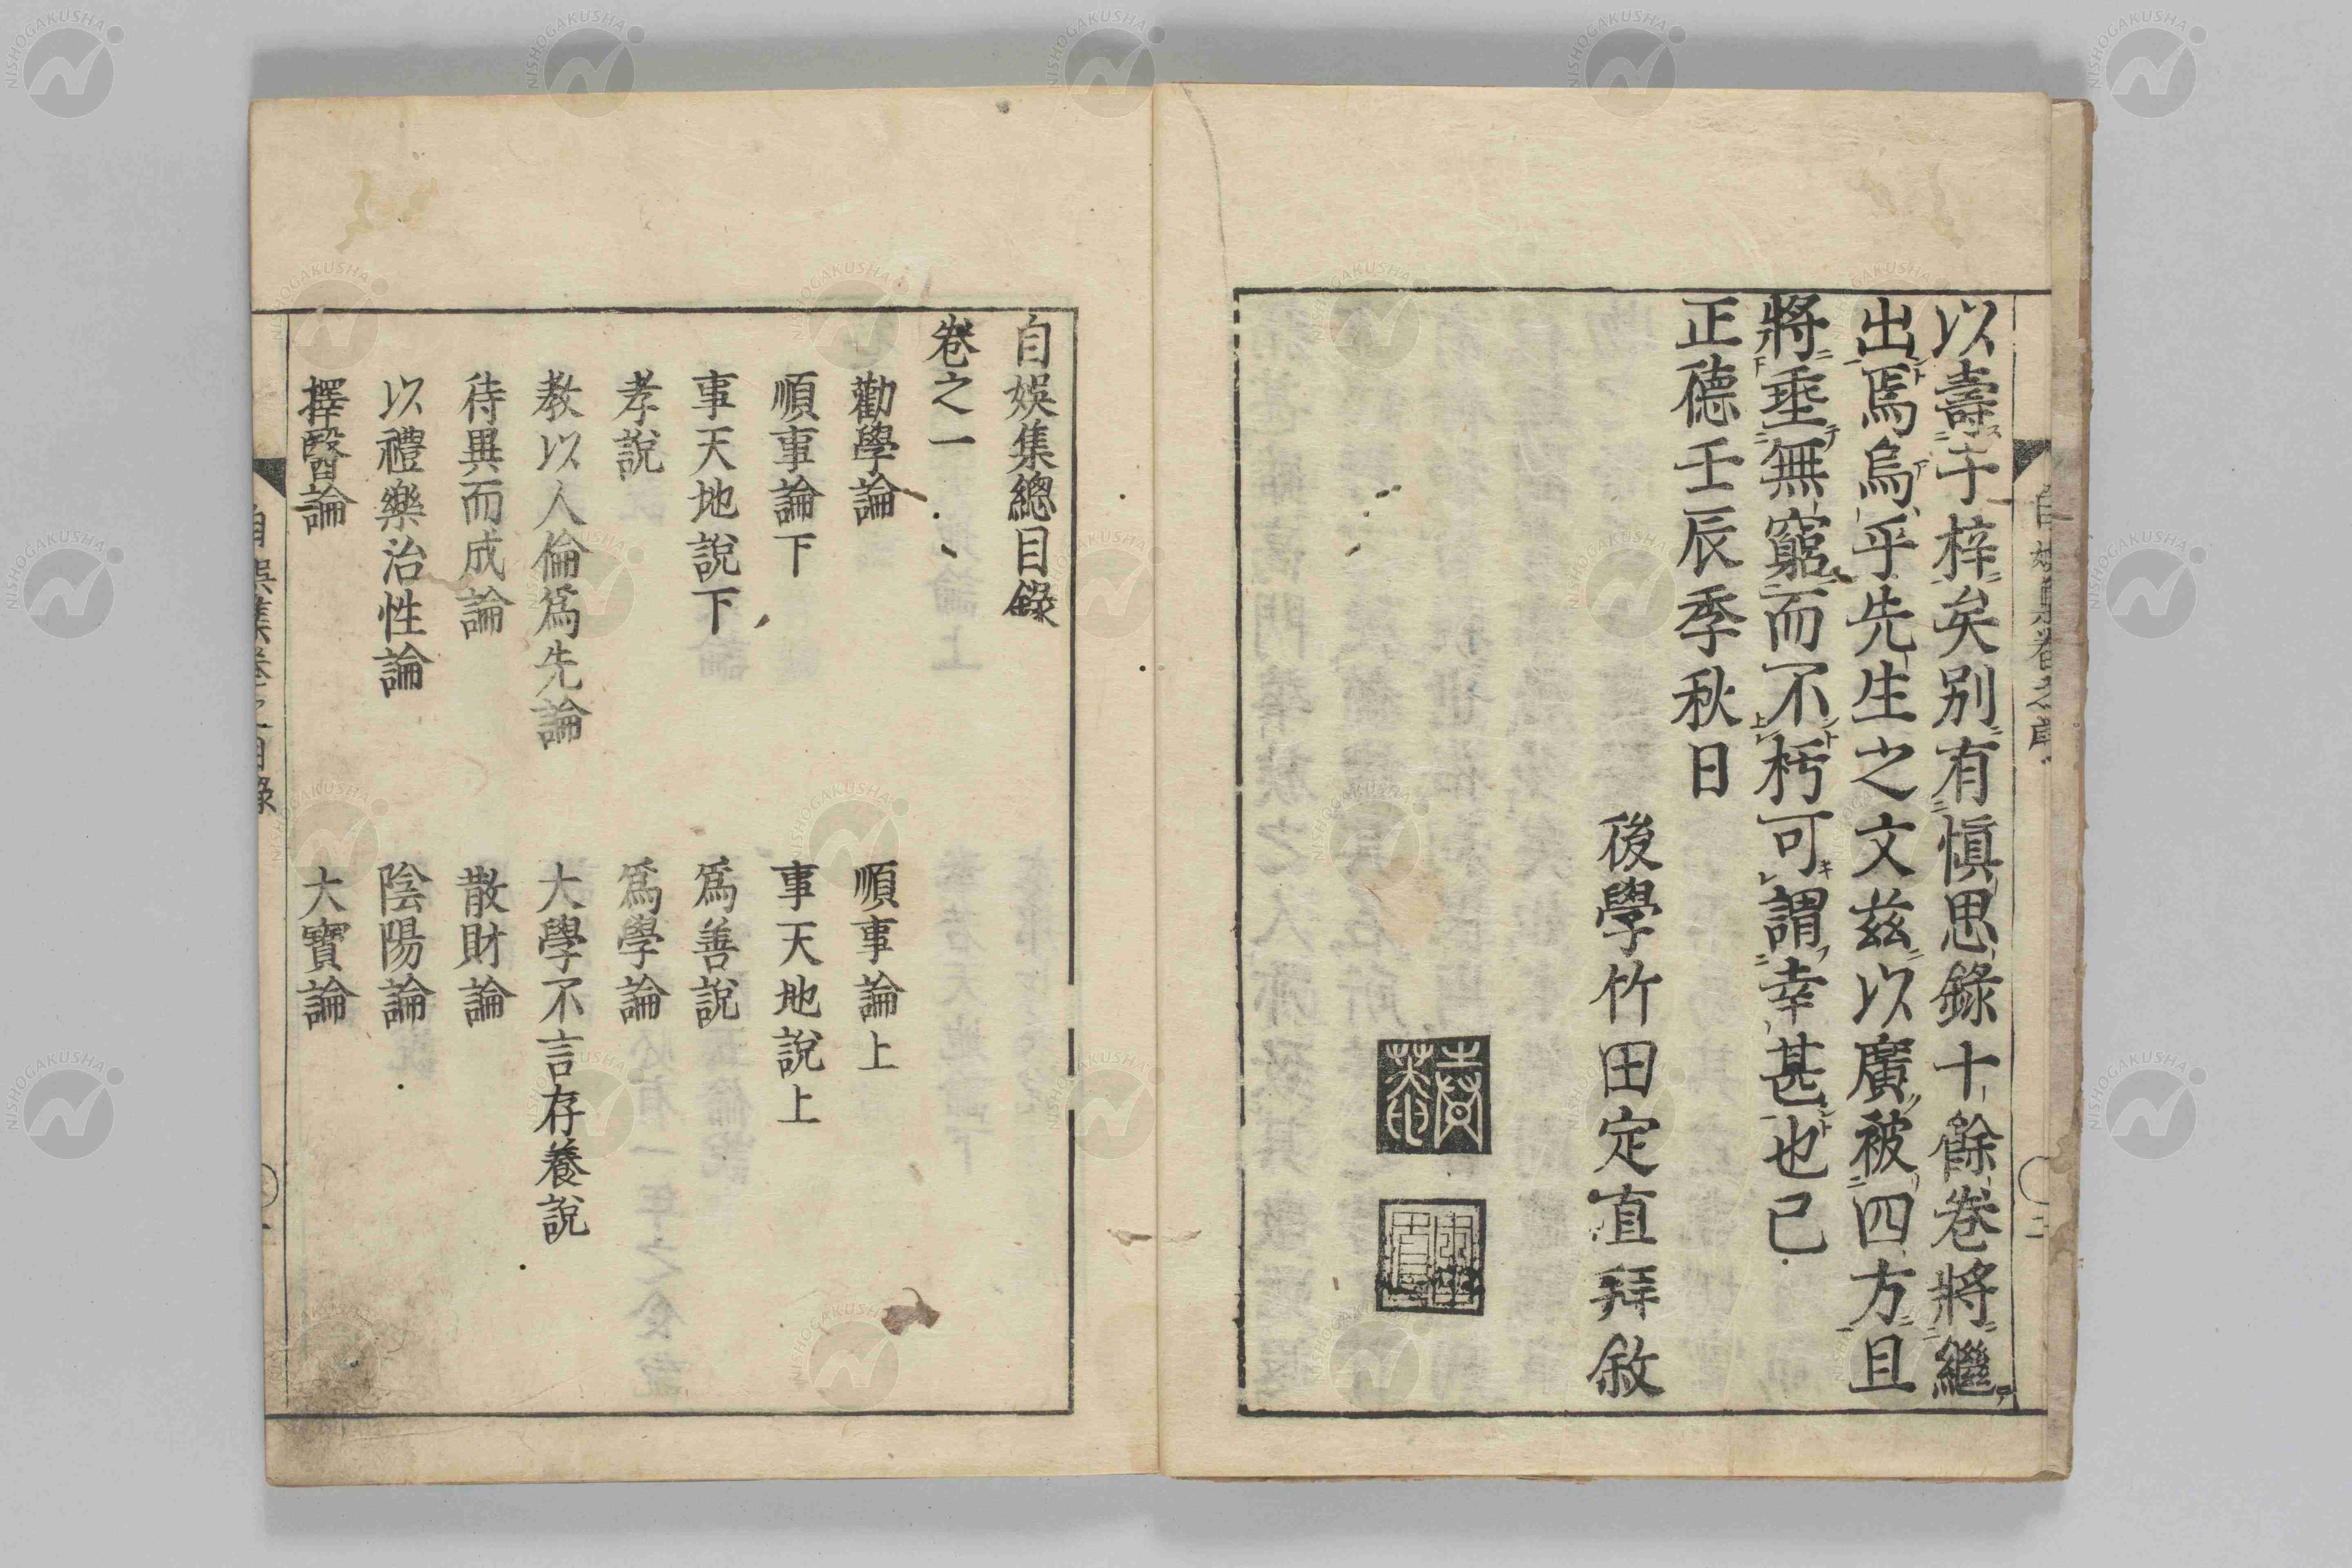 以壽于梓矣別有愼思錄十餘卷將繼
出焉烏乎先生之文茲以廣被四方且
將垂無窮而不朽可謂幸甚也已
正德壬辰季秋日
後學竹田定直拜敘
自娛集總目錄
卷之一
勸學論
順事論上
順事論下
事天地說上
事天地說下
爲善說
孝說
爲學論
教以人倫爲先論
大學不言存養說
待異而成論
散財論
以禮樂治性論
陰陽論
擇醫論
大寶論
自娛集卷之一目錄
NISHOGAKUSHA